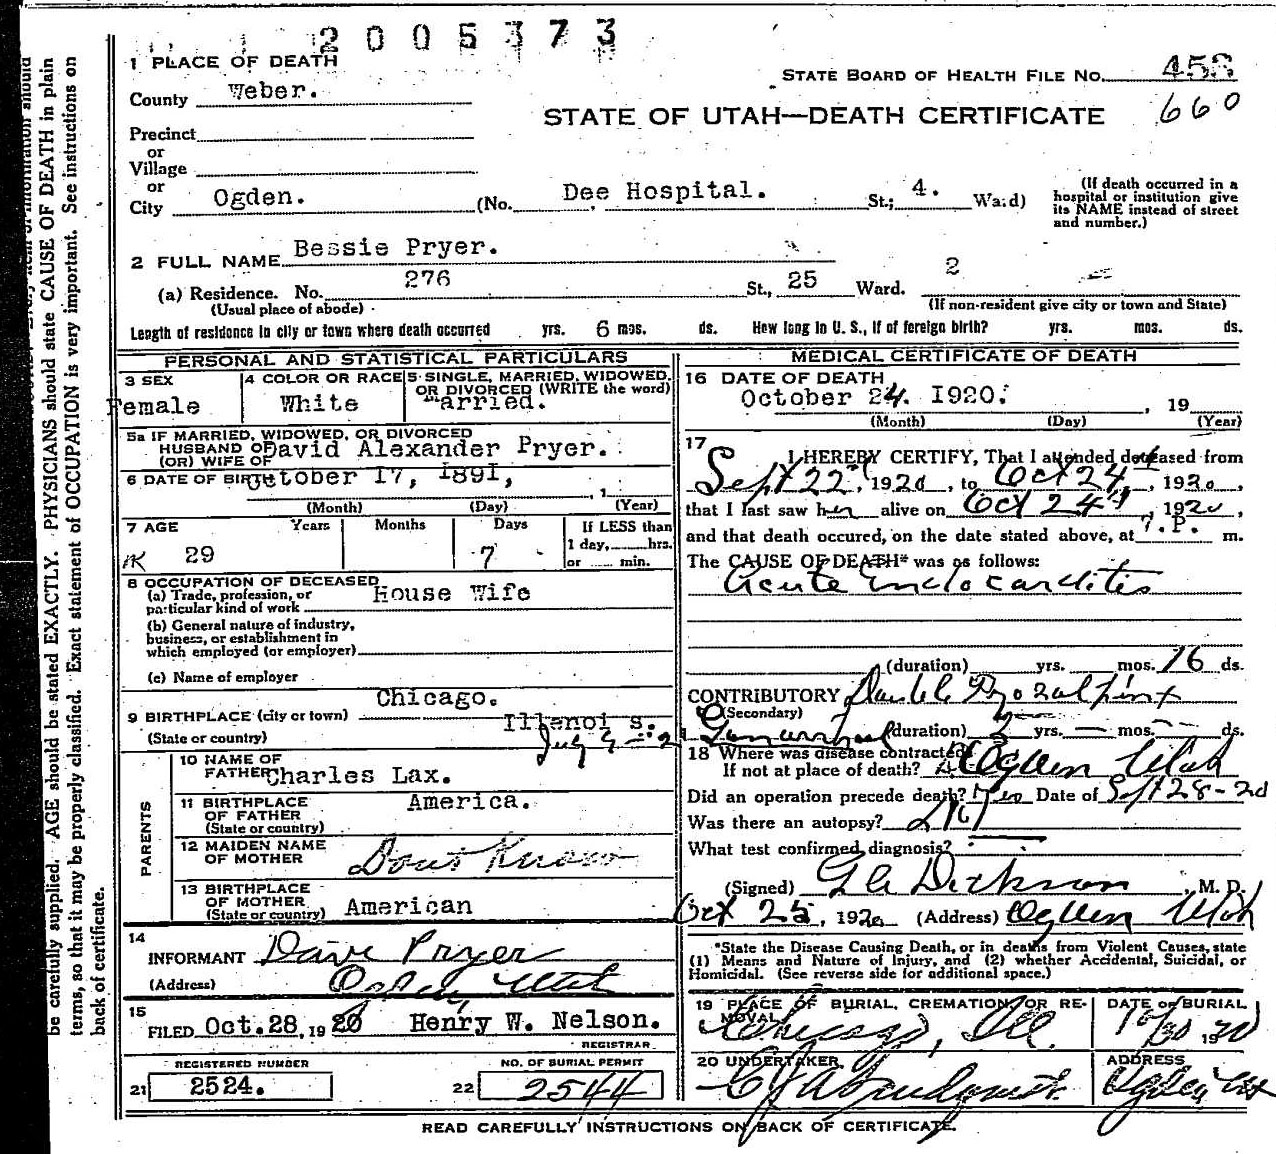 2005373
1 PLACE OF DEATH
STATE BOARD OF HEALTH FILE No. 458
County Weber.
660
STATE OF UTAH—DEATH CERTIFICATE
Precinct
or
Village
or
City Ogden. (No. Dee Hospital. St.; 4. Ward)
(If death occurred in a hospital or institution give its NAME instead of street and number.)
2 FULL NAME Bessie Pryer.
(a) Residence. No. 276 St., 25 Ward. 2
(Usual place of abode) (If non-resident give city or town and State)
Length of residence in city or town where death occurred yrs. 6 mos. ds. How long in U. S., if of foreign birth? yrs. mos. ds.
PERSONAL AND STATISTICAL PARTICULARS
3 SEX Female
4 COLOR OR RACE White
5 SINGLE, MARRIED, WIDOWED, OR DIVORCED (WRITE the word) Married.
5a IF MARRIED, WIDOWED, OR DIVORCED
HUSBAND OF David Alexander Pryer.
(OR) WIFE OF
6 DATE OF BIRTH October 17, 1891, , 1
(Month) (Day) (Year)
7 AGE Years Months Days If LESS than
1 day, hrs.
29 7 or min.
8 OCCUPATION OF DECEASED
(a) Trade, profession, or
particular kind of work House Wife
(b) General nature of industry,
business, or establishment in
which employed (or employer)
(c) Name of employer
9 BIRTHPLACE (city or town) Chicago.
(State or country) Illenois.
10 NAME OF
FATHER Charles Lax.
11 BIRTHPLACE
OF FATHER America.
(State or country)
12 MAIDEN NAME
OF MOTHER Dont Know
13 BIRTHPLACE
OF MOTHER
(State or country) American
PARENTS
14
INFORMANT Dave Pryer
(Address) Ogden Utah
15
FILED Oct. 28, 1920 Henry W. Nelson.
REGISTRAR
REGISTERED NUMBER
21 2524.
NO. OF BURIAL PERMIT
22 2544
MEDICAL CERTIFICATE OF DEATH
16 DATE OF DEATH
October 24. 1920. , 19
(Month) (Day) (Year)
17
I HEREBY CERTIFY, That I attended deceased from
Sept 22, 1920, to Oct 24, 1920,
that I last saw her alive on Oct 24, 1920,
and that death occured, on the date stated above, at 7.P. m.
The CAUSE OF DEATH* was as follows:
Acute Endocarditis
(duration) yrs. mos. 16 ds.
CONTRIBUTORY Double Pyosalpinx
(Secondary)
(duration) 2 yrs. — mos. — ds.
18 Where was disease contracted
If not at place of death? Ogden Utah
Did an operation precede death? Yes Date of Sept 28-20
Was there an autopsy? No
What test confirmed diagnosis?
(Signed) G A Dickson, M. D.
Oct 25, 1920 (Address) Ogden Utah
*State the Disease Causing Death, or in deaths from Violent Causes, state
(1) Means and Nature of Injury, and (2) whether Accidental, Suicidal, or
Homicidal. (See reverse side for additional space.)
19 PLACE OF BURIAL, CREMATION, OR REMOVAL
Chicago, Ill.
DATE OF BURIAL
10/30 1920
20 UNDERTAKER
ADDRESS
Ogden Utah
READ CAREFULLY INSTRUCTIONS ON BACK OF CERTIFICATE.
be carefully supplied. AGE should be stated EXACTLY. PHYSICIANS should state CAUSE OF DEATH in plain
terms, so that it may be properly classified. Exact statement of OCCUPATION is very important. See instructions on
back of certificate.